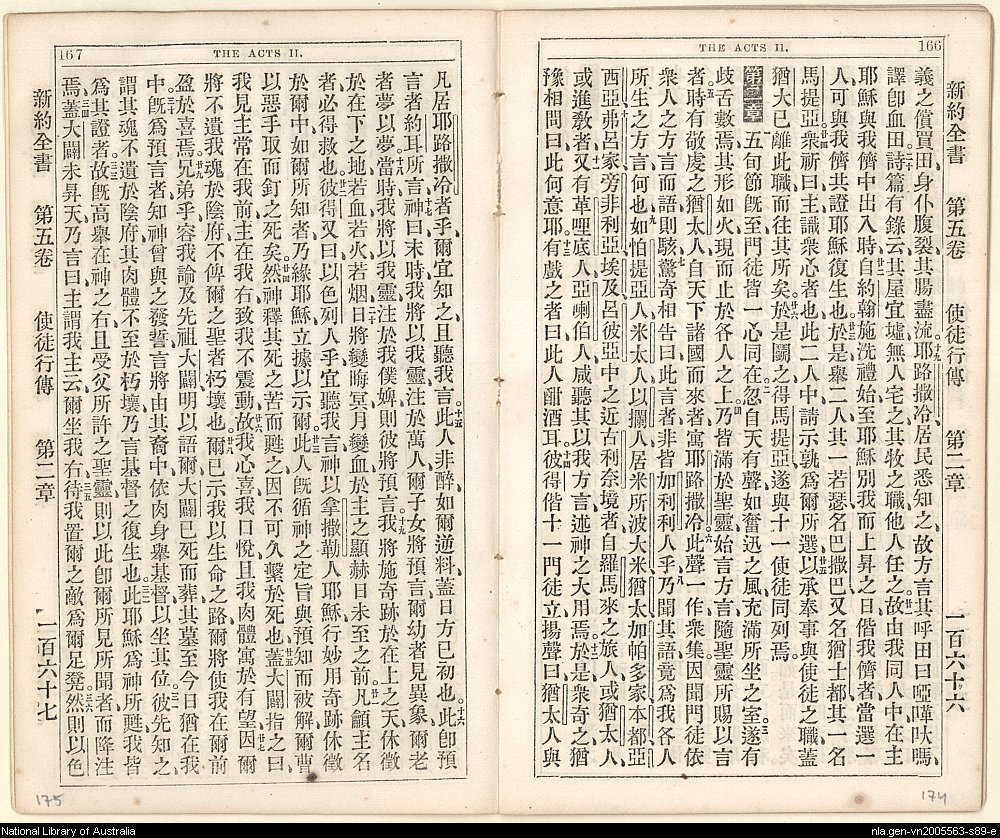 166
THE ACTS II.
新約全書　第五卷　使徒行傳　第二章　一百六十六
義之償買田、身仆腹裂、其腸盡流、耶路撒冷居民悉知之、故方言其呼田曰啞吠嗎、
譯卽血田、詩篇有錄云、其屋宜墟、無人宅之、其牧之職、他人任之、故由我同人中、在主
耶穌與我儕中出入時、自約翰施洗禮始、至耶穌別我而上昇之日、偕我儕者、當選一
人可與我儕共證耶穌復生也、於是舉二人、其一若瑟名巴撒巴、又名猶士都、其一名
馬提亞、衆祈曰、主識衆心者也、此二人中、請示孰爲爾所選、以承奉事與使徒之職、蓋
猶大已離此職、而往其所矣、於是鬮之、得馬提亞、遂與十一使徒同列焉、
第二章　五旬節旣至、門徒皆一心同在、忽自天有聲、如奮迅之風、充滿所坐之室、遂有
歧舌數焉、其形如火、現而止於各人之上、乃皆滿於聖靈、始言方言、隨聖靈所賜以言
者、時有敬虔之猶太人、自天下諸國而來者、寓耶路撒冷、此聲一作、衆集、因聞門徒依
衆人之方言而語、則駭驚奇、相告曰、此言者、非皆加利利人乎、乃聞其語、竟爲我各人
所生之方言、何也、如怕提亞人、米太人、以攔人、居米所波大米、猶太、加帕多家、本都、亞
西亞、弗呂家、旁非利亞、埃及、呂彼亞中之近古利奈境者、自羅馬來之旅人、或猶太人、
或進敎者、又有革哩底人、亞喇伯人、此人咸聽其以我方言、述神之大用焉、於是衆奇之、猶
豫相問曰、此何意耶、有戲之者曰、此人酣酒耳、彼得偕十一門徒立、揚聲曰、猶太人、與
174
167
THE ACTS II.
凡居耶路撒冷者乎、爾宜知之、且聽我言、此人非醉、如爾逆料、蓋日方已初也、此卽預
言者約耳所言、神曰、末時、我將以我靈、注於萬人、爾子女將預言、爾幼者見異象、爾老
者夢以夢、當時、我將以我靈、注於我僕婢、則彼將預言、我將施奇跡於在上之天、休徵
於在下之地、若血、若火、若烟、日將變晦冥、月變血、於主之顯赫日未至之前、凡籲主名
者、必得救也、彼得又曰、以色列人乎、宜聽我言、神以拿撒勒人耶穌、行妙用奇跡休徵
於爾中、如爾所知者、乃緣耶穌立據、以示爾、此人旣循神之定旨與預知、而被解、爾曹
以惡手取而釘之死矣、然神釋其死之苦而甦之、因不可久繫於死也、蓋大闢指之曰、
我見主常在我前、主在我右、致我不震動、故我心喜、我口悅、且我肉體寓於有望、因爾
將不遺我魂於陰府、不俾爾之聖者朽壞也、爾已示我以生命之路、爾將使我在爾前
盈於喜焉、兄弟乎、容我論及先祖大闢、明以語爾、大闢已死而葬、其墓至今日、猶在我
中、旣爲預言者、知神曾與之發誓言、將由其裔中、依肉身舉基督以坐其位、彼先知之、
謂其魂不遺於陰府、其肉體不至於朽壞、乃言基督之復生也、此耶穌爲神所甦、我皆
爲其證者、故旣高舉在神之右、且受父所許之聖靈、則以此卽爾所見所聞者而降注
焉、蓋大闢未昇天、乃言曰、主謂我主云、爾坐我右、待我置爾之敵爲爾足凳、然則以色
新約全書　第五卷　使徒行傳　第二章　一百六十七
175
National Library of Australia
nla.gen-vn2005563-s89-e